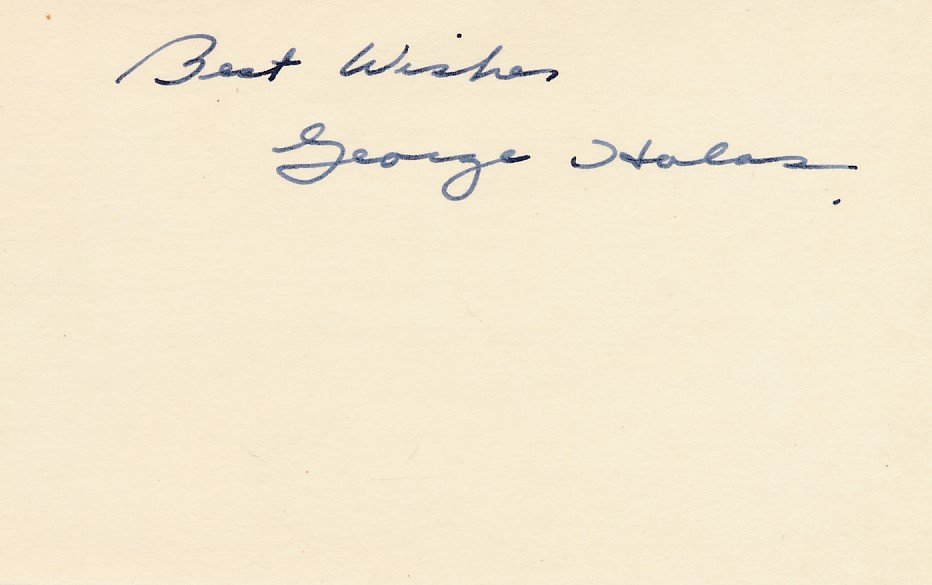 Best Wishes
George Halas